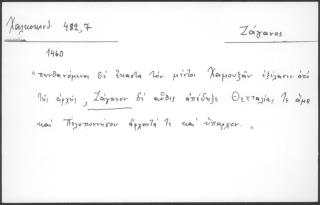 Χαλκοκονδ 482,7
Ζάγανος
1460
"πυνθανόμενος δὲ ἕκαστα τὸν μέντοι Χαμουζᾶν ἐξήλασεν ἀπὸ
τῆς ἀρχῆς, Ζάγανον δὲ αὖθις ἀπέδειξε Θετταλίας τε ἅμα
καὶ Πελοποννήσου ἄρχοντά τε καὶ ὕπαρχον."